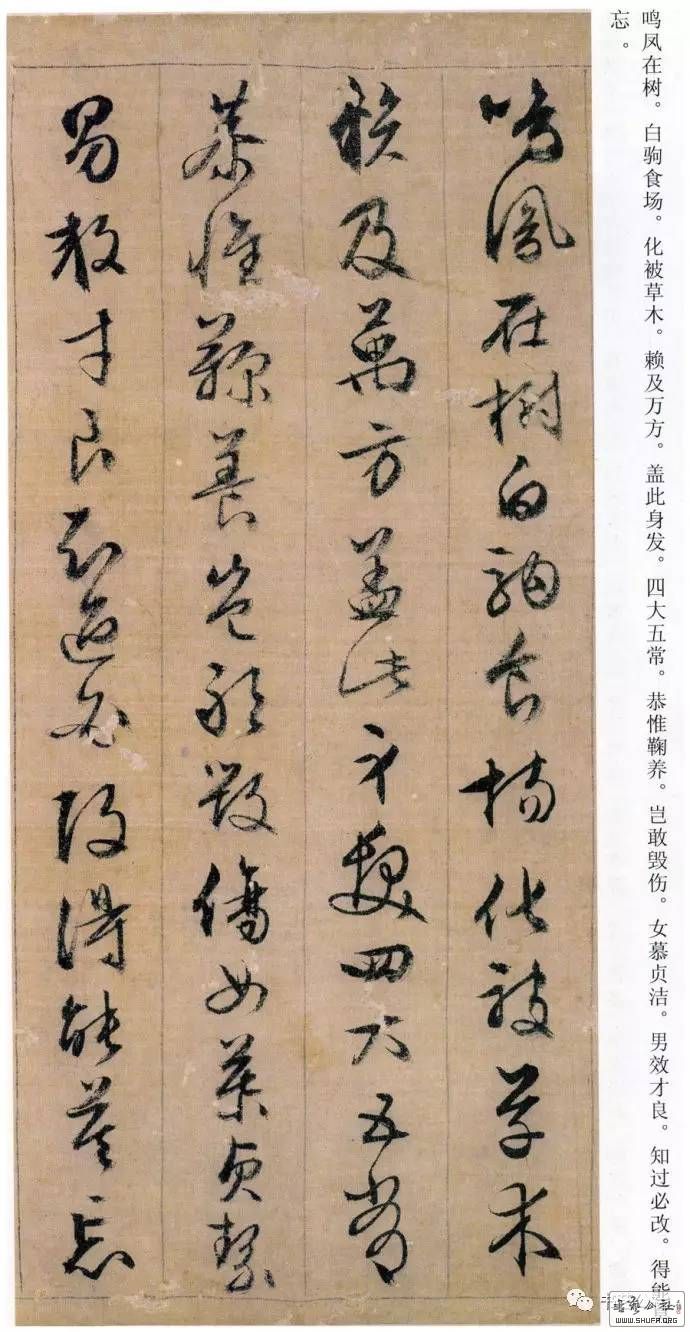 鸣凤在树。白驹食场。化被草木。赖及万方。盖此身发。四大五常。恭惟鞠养。岂敢毁伤。女慕贞洁。男效才良。知过必改。得能
忘。
鳴鳳在樹白駒食場化被草木
賴及萬方盖此身髮四大五常
恭惟鞠養豈敢毀傷女慕貞絜
男效才良知過必改得能莫忘
書藝公社
WWW.SHUFA.ORG